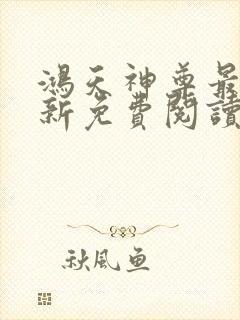 鴻天神尊最
新免費閱讀
秋風鱼